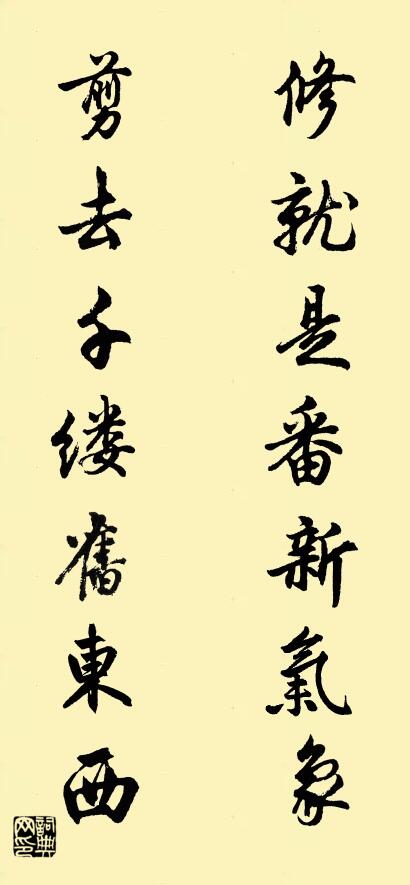 修就是番新氣象
剪去千缕舊東西
詞典网印